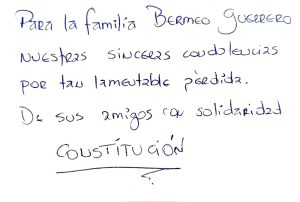 Para la familia Bermeo Guerrero
nuestras sinceras condolencias
por tan lamentable pérdida.
De sus amigos con solidaridad
CONSTITUCIÓN